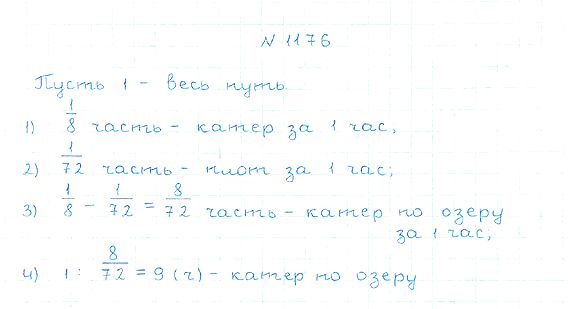 N 1176
Пусть 1 - весь путь
1) 1/8 часть - катер за 1 час,
2) 1/72 часть - плот за 1 час;
3) 1/8 - 1/72 = 8/72 часть - катер по озеру
за 1 час,
4) 1 : 8/72 = 9 (ч) - катер по озеру